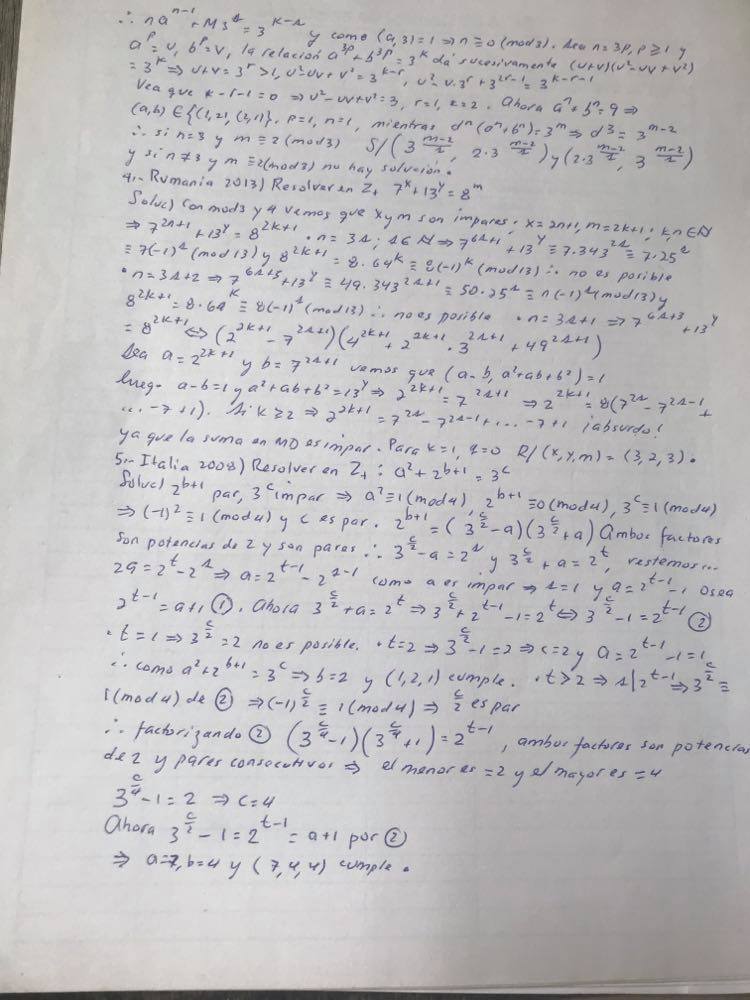 ∴ na^(n-1) + M3^s = 3^(k-s) y como (a,3)=1 ⇒ n≡0(mod3). Sea n=3p, p≥1 y
a^p=u, b^p=v, la relación a^(3p)+b^(3p)=3^k da sucesivamente (u+v)(u²-uv+v²)
=3^k ⇒ u+v=3^r>1, u²-uv+v²=3^(k-r), u²-v.3^r+3^(2r-1)=3^(k-r-1)
Vea que k-r-1=0 ⇒ u²-uv+v²=3, r=1, k=2. Ahora a^n+b^n=9 ⇒
(a,b)∈{(1,2),(2,1)}. p=1, n=1, mientras d^n(a^n+b^n)=3^m ⇒ d³=3^(m-2)
∴ si n=3 y m≡2(mod3) S/(3^((m-2)/3), 2·3^((m-2)/3)) y (2·3^((m-2)/3), 3^((m-2)/3))
y si n≠3 y m≡2(mod3) no hay solución.
4.- Rumania 2013) Resolver en Z+ 7^x+13^y=8^m
Soluc) Con mod3 y 4 vemos que x y m son impares: x=2n+1, m=2k+1; k,n∈N
⇒ 7^(2n+1)+13^y=8^(2k+1) · n=3s; s∈N ⇒ 7^(6s+1)+13^y≡7.343^(2s)≡7.25^s
≡7(-1)^s(mod13) y 8^(2k+1)=8.64^k≡8(-1)^k(mod13) ∴ no es posible
· n=3s+2 ⇒ 7^(6s+5)+13^y≡49.343^(2s+1)≡50.25^s≡n(-1)^s(mod13) y
8^(2k+1)=8.64^k≡8(-1)^s(mod13) ∴ no es posible · n=3s+1 ⇒ 7^(6s+3)+13^y
=8^(2k+1) ⇔ (2^(2k+1)-7^(2s+1))(4^(2k+1)+2^(2k+1).3^(2s+1)+49^(2s+1))
Sea a=2^(2k+1) y b=7^(2s+1) vemos que (a-b, a²+ab+b²)=1
luego a-b=1 y a²+ab+b²=13^y ⇒ 2^(2k+1)=7^(2s+1) ⇒ 2^(2k+1)=8(7^(2s)-7^(2s-1)+
...-7+1). Si k≥2 ⇒ 2^(2k+1)=7^(2s)-7^(2s-1)+...-7+1 ¡absurdo!
ya que la suma en MD es impar. Para k=1, s=0 R/(x,y,m)=(3,2,3).
5.- Italia 2008) Resolver en Z+: a²+2^(b+1)=3^c
Soluc) 2^(b+1) par, 3^c impar ⇒ a²≡1(mod4), 2^(b+1)≡0(mod4), 3^c≡1(mod4)
⇒ (-1)²≡1(mod4) y c es par. 2^(b+1)=(3^(c/2)-a)(3^(c/2)+a) Ambos factores
son potencias de 2 y son pares ∴ 3^(c/2)-a=2^s y 3^(c/2)+a=2^t, restemos...
2a=2^t-2^s ⇒ a=2^(t-1)-2^(s-1) como a es impar ⇒ s=1 y a=2^(t-1)-1 O sea
2^(t-1)=a+1 ①. Ahora 3^(c/2)+a=2^t ⇒ 3^(c/2)+2^(t-1)-1=2^t ⇔ 3^(c/2)-1=2^(t-1) ②
· t=1 ⇒ 3^(c/2)=2 no es posible. · t=2 ⇒ 3^(c/2)-1=2 ⇒ c=2 y a=2^(t-1)-1=1
∴ como a²+2^(b+1)=3^c ⇒ b=2 y (1,2,1) cumple. · t>2 ⇒ 4|2^(t-1) ⇒ 3^(c/2)≡
1(mod4) de ② ⇒ (-1)^(c/2)≡1(mod4) ⇒ c/2 es par
∴ factorizando ② (3^(c/4)-1)(3^(c/4)+1)=2^(t-1), ambos factores son potencias
de 2 y pares consecutivos ⇒ el menor es =2 y el mayor es =4
3^(c/4)-1=2 ⇒ c=4
Ahora 3^(c/2)-1=2^(t-1)=a+1 por ②
⇒ a=7, b=4 y (7,4,4) cumple.